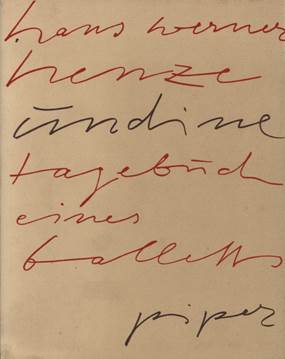 hans werner
henze
undine
tagebuch
eines
balletts
piper